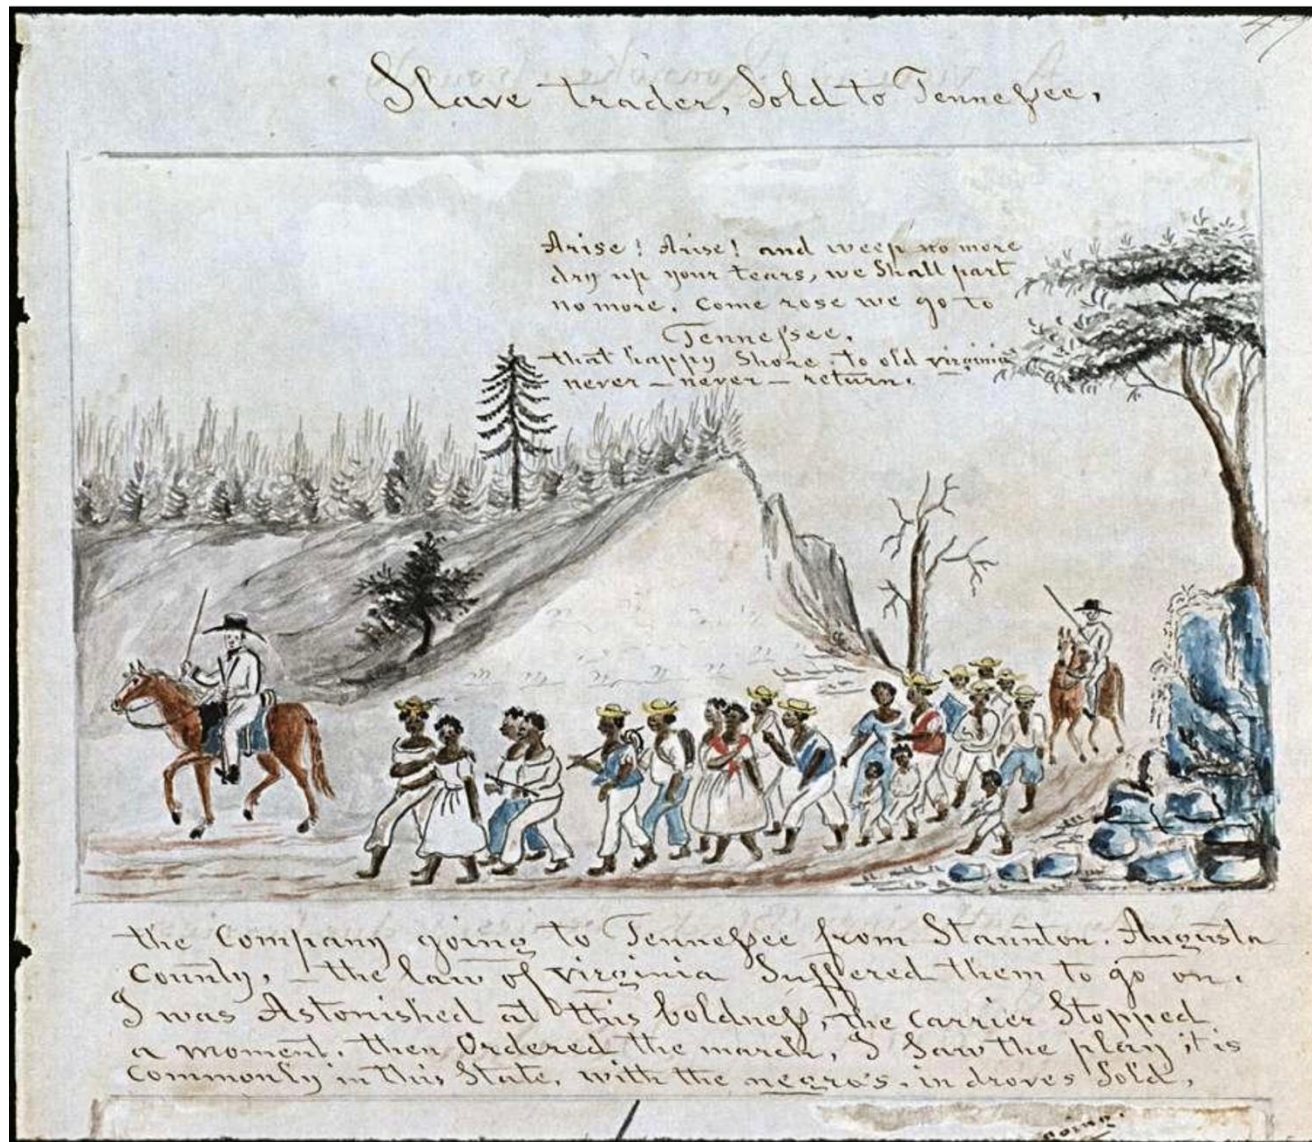 47
Slave trader, Sold to Tennessee,
Arise! Arise! and weep no more
dry up your tears, we Shall part
no more. Come rose we go to
Tennessee,
that happy Shore, to old virginia
never – never – return.
the Company going to Tennessee from Staunton. Augusta
County, – the law of virginia Suffered them to go on.
I was Astonished at this boldness, the carrier Stopped
a moment. then Ordered the march, I Saw the play it is
Commonly in this State. with the negro's. in droves Sold,